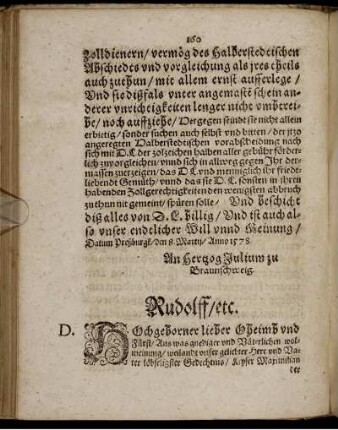 160
Zolldienern/ vermög des Halberstedtischen
Abschiedts vnd vorgleichung als jres theils
auch zuthun/ mit allem ernst aufferlege/
Vnd sie dißfals vnter angemaste schein an-
derer vnrichtigkeiten lenger nicht vmbtrei-
be/ noch auffziehe/ Dergegen stünde sie nicht allein
erbietig/ sonder suchen auch selbst vnd bitten/ der itzo
angeregten Halberstedtischen vorabscheidung nach
sich mit D. L. der zolzeichen halben aller gebühr förder-
lich zuvorgleichen/ vnnd sich in allweg gegen Ihr der-
massen zuerzeigen/ das D L vnd menniglich ihr friedt-
liebendt Gemüth/ vnnd das sie D. L. sonsten in ihren
habenden Zollgerechtigkeiten den wenigsten abbruch
zuthun nit gemeint/ spüren solle/ Vnd beschicht
diß alles von D. L. billig/ Vnd ist auch al-
so vnser endtlicher Will vnnd Meinung/
Datum Preßburgk/ den 8. Martij/ Anno 1578.
An Hertzog Julium zu
Braunschweig.
Rudolff/ etc.
D. HOchgeborner lieber Oheimb vnd
Fürst/ Aus was gnediger vnd Väterlichen wol-
meinung/ weilandt vnser geliebter Herr vnd Va-
ter löbseligster Gedechtnus/ Keyser Maximilian
der